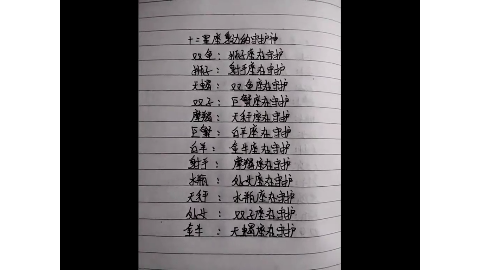 十二星座身边的守护神
双鱼：狮子座在守护
狮子：射手座在守护
天蝎：双鱼座在守护
双子：巨蟹座在守护
摩羯：天秤座在守护
巨蟹：白羊座在守护
白羊：金牛座在守护
射手：摩羯座在守护
水瓶：处女座在守护
天秤：水瓶座在守护
处女：双子座在守护
金牛：天蝎座在守护